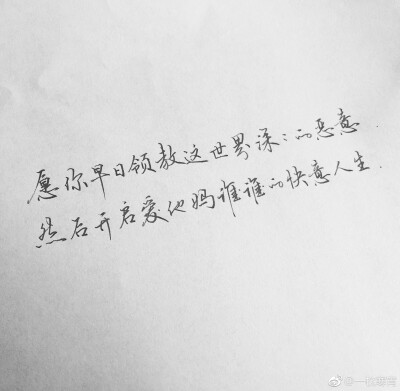 愿你早日领教这世界深:的恶意.
然后开启爱他妈谁谁的快意人生.